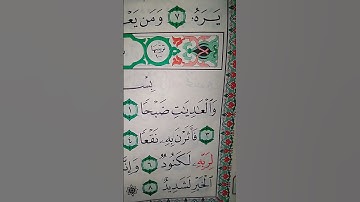 يَرَهُۥ ٧ وَمَن يَعْ
بِسْ
وَالْعَادِيَاتِ ضَبْحًا ١
٣ فَأَثَرْنَ بِهِۦ نَقْعًا ٤
لِرَبِّهِۦ لَكَنُودٌ ٦ وَإِنَّ
الْخَيْرِ لَشَدِيدٌ ٨